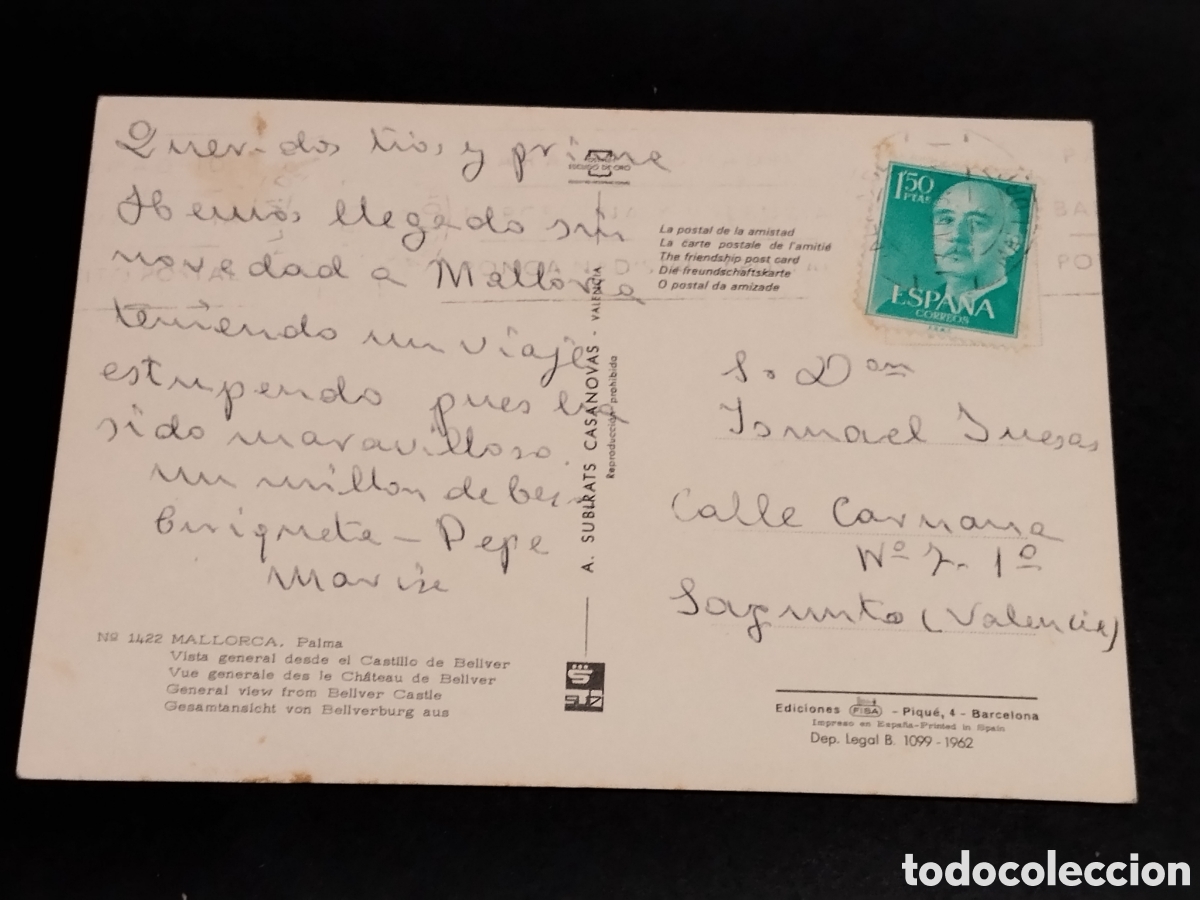 Queridos tios y prima
Hemos llegado sin
novedad a Mallorca
teniendo un viaje
estupendo pues ha
sido maravilloso.
un millon de besos
Enriqueta - Pepe
Marise
Nº 1422 MALLORCA. Palma
Vista general desde el Castillo de Bellver
Vue generale des le Château de Bellver
General view from Bellver Castle
Gesamtansicht von Bellverburg aus
ESCUDO DE ORO
A. SUBIRATS CASANOVAS - VALENCIA
Reproducción prohibida
La postal de la amistad
La carte postale de l'amitié
The friendship post card
Die freundschaftskarte
O postal da amizade
1'50
PTAS
ESPAÑA
CORREOS
S. Don
Ismael
Calle Caruana
Nº 7. 1º
Sagunto (Valencia)
Ediciones FISA - Piqué, 4 - Barcelona
Impreso en España-Printed in Spain
Dep. Legal B. 1099 - 1962
todocoleccion